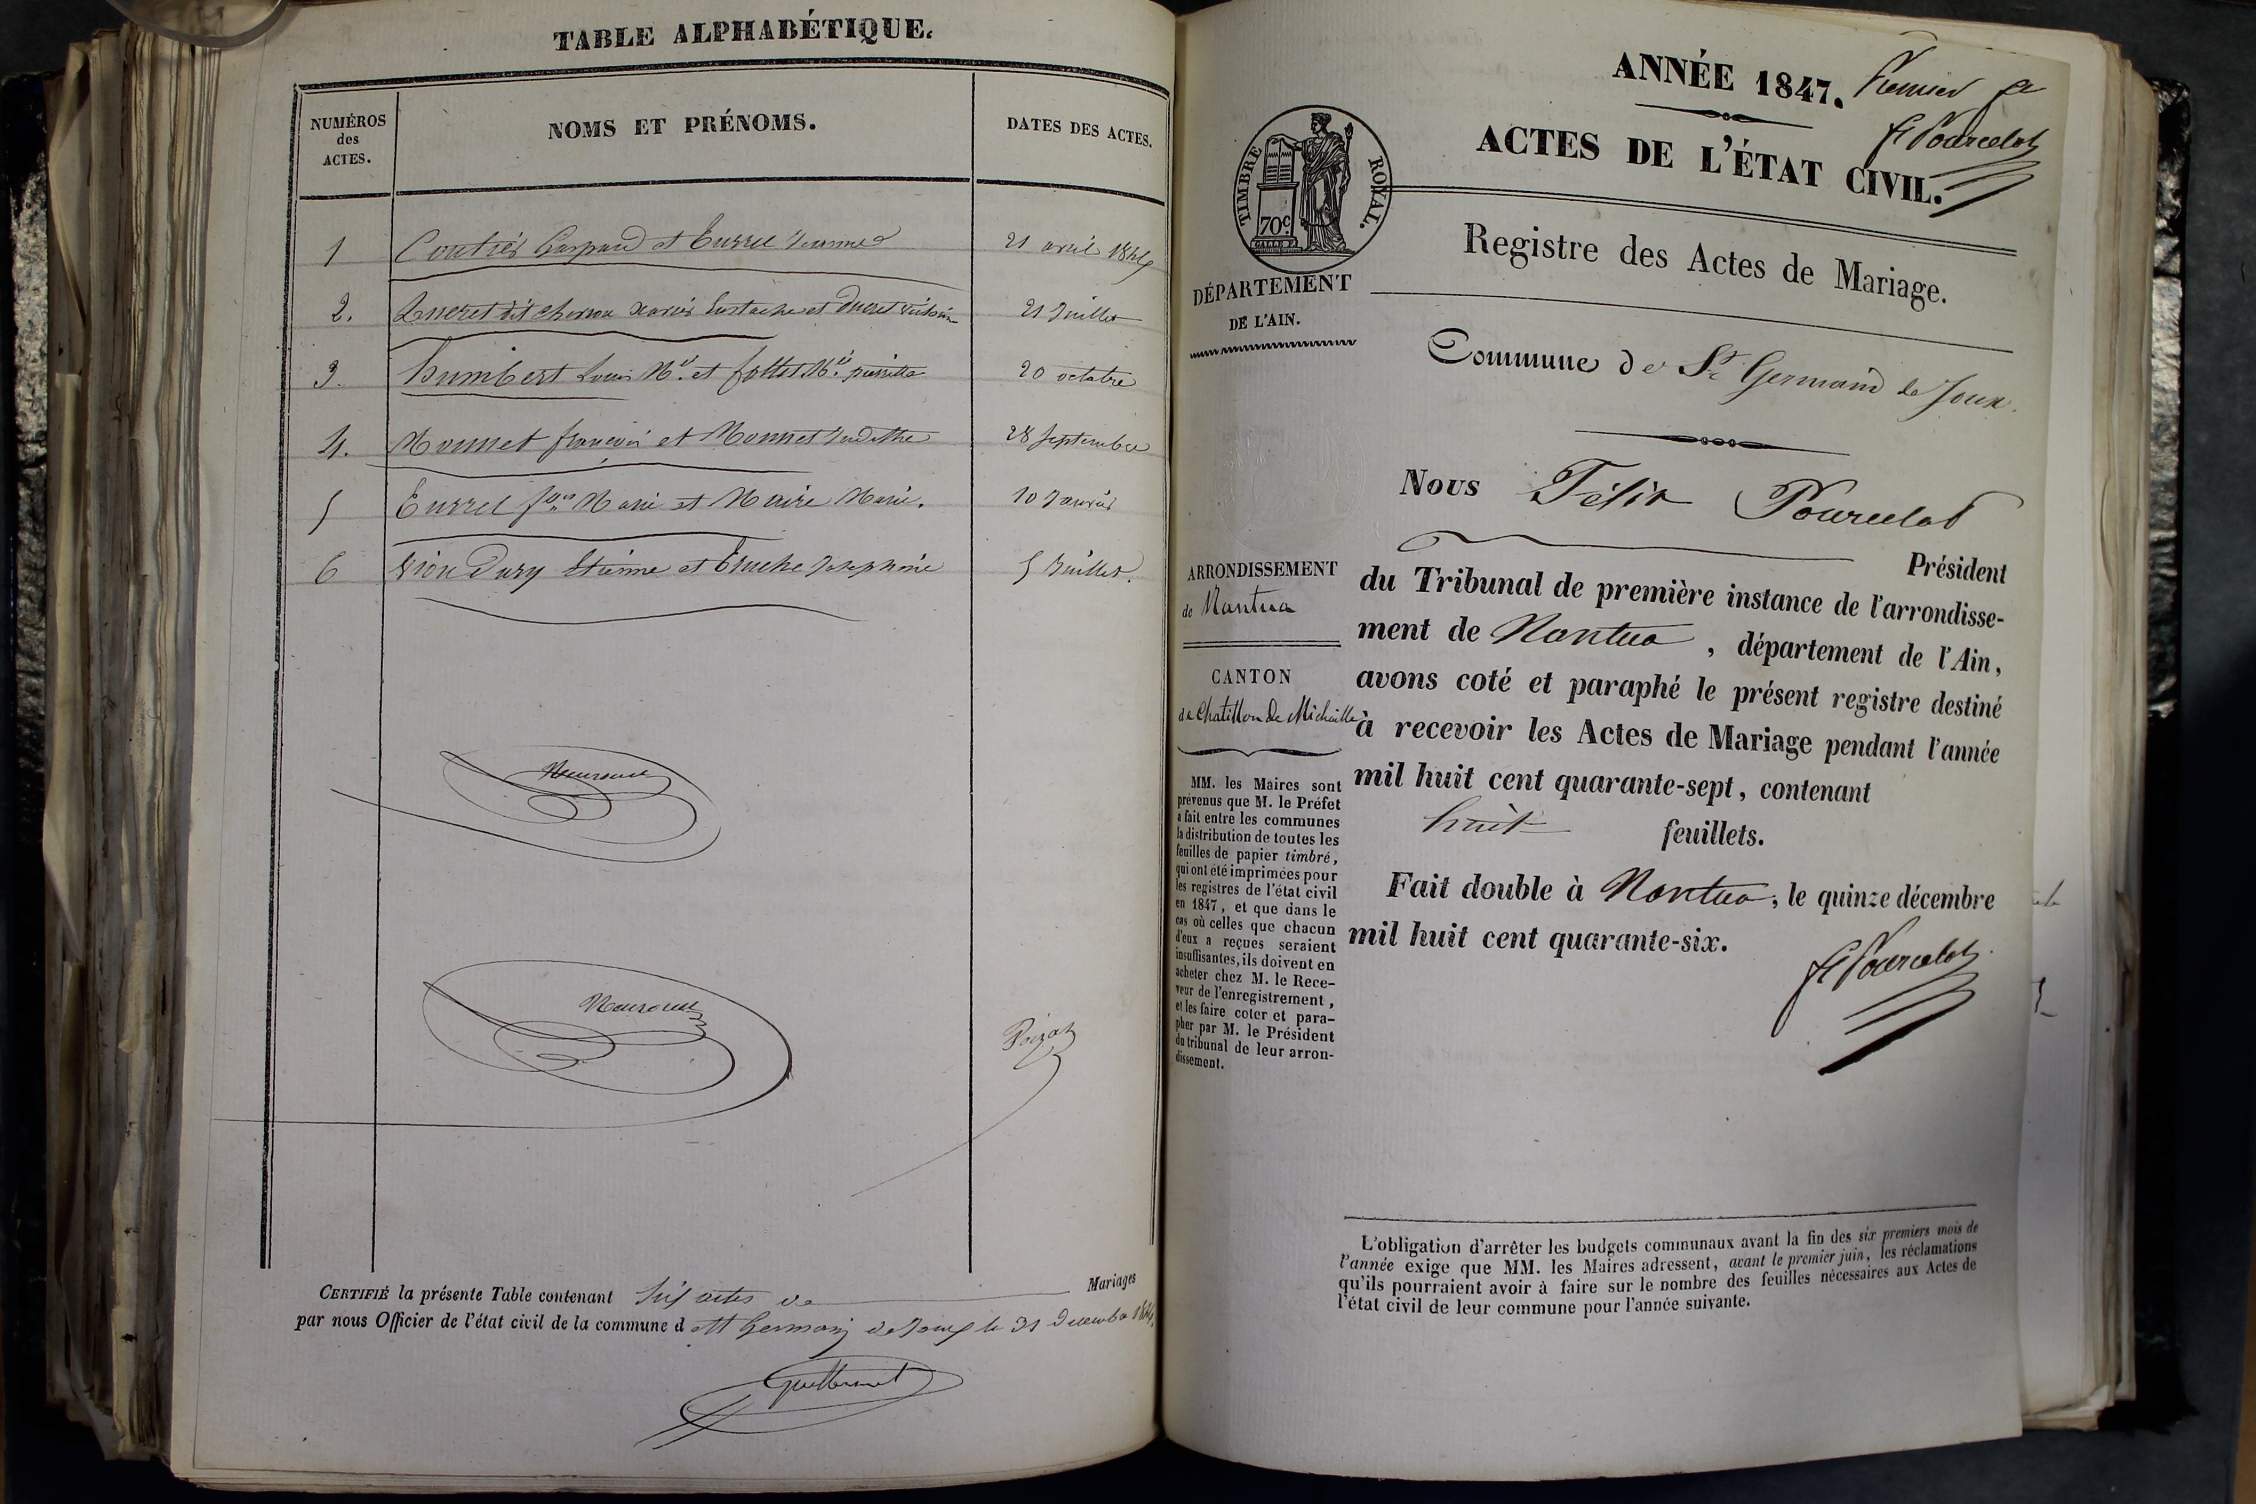 TABLE ALPHABÉTIQUE.
NUMÉROS
des
ACTES.
NOMS ET PRÉNOMS.
DATES DES ACTES.
1 Gaspard et Jeanne 21 avril
2. dit Eustache et Ducret 21 Juillet
3. Humbert Louis et pierrette 20 octobre
4. Monnet françois et Monnet Judithe 28 Septembre
5 Eurrel Marie et Maire Marie. 10 Janvier
6 Vion Dury Etienne et Josephine 5 Juillet.
CERTIFIÉ la présente Table contenant Six actes de Mariages
par nous Officier de l'état civil de la commune d e St Germain de Joux le 31 Decembre
ANNÉE 1847.
Premier fet
F Pourcelot
ACTES DE L'ÉTAT CIVIL.
TIMBRE ROYAL.
70c
Registre des Actes de Mariage.
DÉPARTEMENT
DE L'AIN.
Commune de St Germain de Joux.
Nous Félix Pourcelot
Président
du Tribunal de première instance de l'arrondisse-
ment de Nantua , département de l'Ain,
avons coté et paraphé le présent registre destiné
à recevoir les Actes de Mariage pendant l'année
mil huit cent quarante-sept, contenant
huit feuillets.
Fait double à Nantua, le quinze décembre
mil huit cent quarante-six.
F Pourcelot
ARRONDISSEMENT
de Nantua
CANTON
de Chatillon de Michaille
MM. les Maires sont
prévenus que M. le Préfet
a fait entre les communes
la distribution de toutes les
feuilles de papier timbré,
qui ont été imprimées pour
les registres de l'état civil
en 1847, et que dans le
cas où celles que chacun
d'eux a reçues seraient
insuffisantes, ils doivent en
acheter chez M. le Rece-
veur de l'enregistrement,
et les faire coter et para-
pher par M. le Président
du tribunal de leur arron-
dissement.
L'obligation d'arrêter les budgets communaux avant la fin des six premiers mois de
l'année exige que MM. les Maires adressent, avant le premier juin, les réclamations
qu'ils pourraient avoir à faire sur le nombre des feuilles nécessaires aux Actes de
l'état civil de leur commune pour l'année suivante.